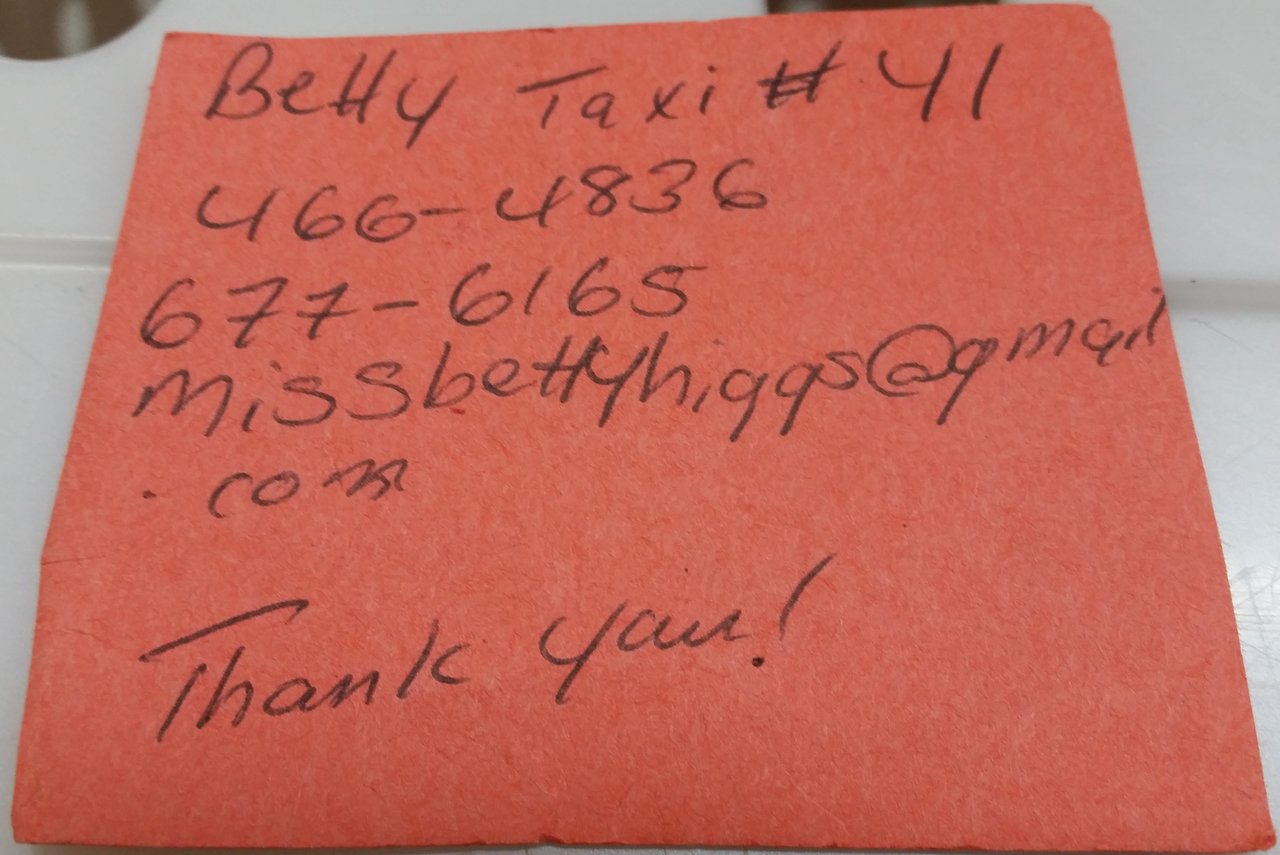 Betty Taxi # 41
466-4836
677-6165
missbettyhiggs@gmail
.com
Thank you!